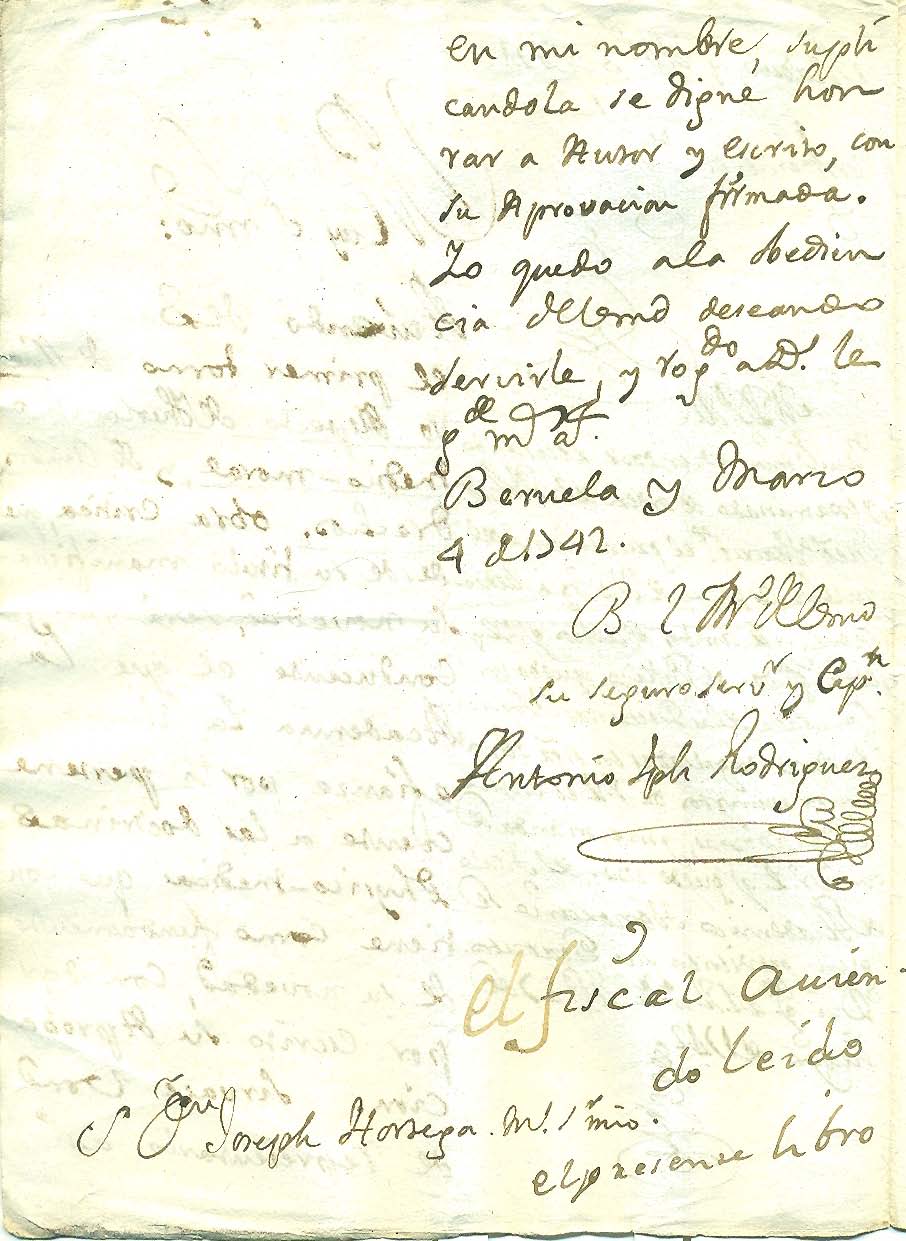 en mi nombre, supli
candola se digne hon
rar a Autor y escrito, con
su Aprovacion firmada.
Yo quedo a la obedien
cia de Vmd deseando
servirle, y rog.do a D.s le
g.de m.s a.s
Beruela y Marzo
4 de 1742.
B l M.o de Vmd
su seguro serv.r y Cap.n
Antonio Jph Rodriguez
el fiscal avien-
do leido
el presente libro
S D.n Joseph Hortega. M.l S.r mio.